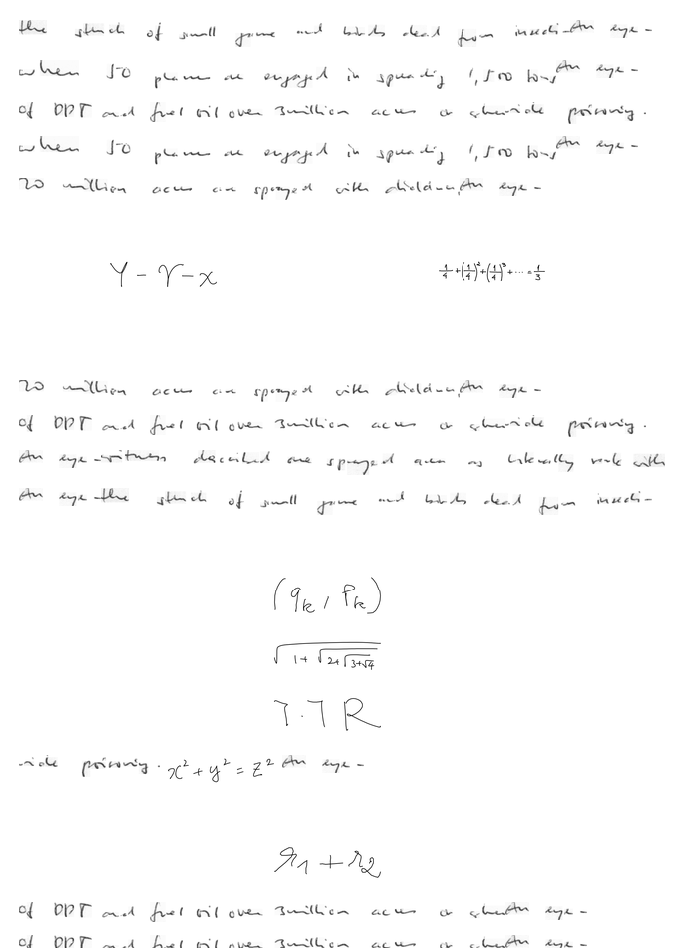 the stench of small game and birds dead from insecti- An eye-
when 50 planes are engaged in spreading 1,500 tons An eye-
of DDT and fuel oil over 3 million acres or poisoning.
when 50 planes are engaged in spreading 1,500 tons An eye-
20 million acres are sprayed with dieldrin, An eye-
Y - γ - x
1/4 + (1/4)^2 + (1/4)^3 + ... = 1/3
20 million acres are sprayed with dieldrin, An eye-
of DDT and fuel oil over 3 million acres or poisoning.
An eye-witness described one sprayed area as literally with
An eye- the stench of small game and birds dead from insecti-
(q_k, p_k)
√(1+√(2+√(3+√4)))
7.7 R
-cide poisoning. x^2 + y^2 = z^2 An eye-
r_1 + r_2
of DDT and fuel oil over 3 million acres or An eye-
of DDT and fuel oil over 3 million acres or An eye-